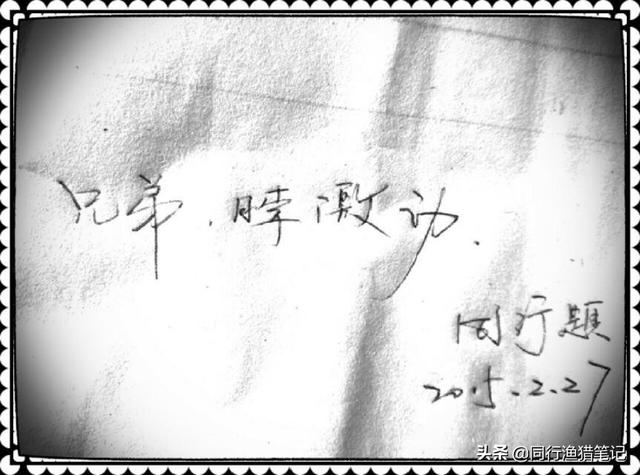 兄弟.激动.
同行题
2015.2.27
头条 @同行渔猎笔记